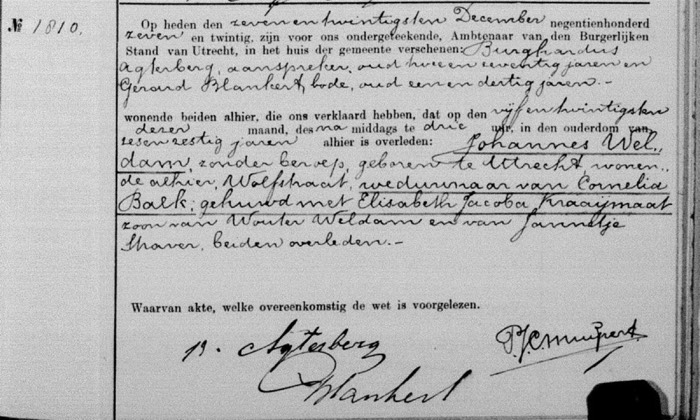 № 1810.
Op heden den zeven en twintigsten December negentienhonderd
zeven en twintig, zijn voor ons ondergeteekende, Ambtenaar van den Burgerlijken
Stand van Utrecht, in het huis der gemeente verschenen: Burghardus
Agterberg, aanspreker, oud twee en zeventig jaren en
Gerard Blankert, bode, oud een en dertig jaren.–
wonende beiden alhier, die ons verklaard hebben, dat op den vijf en twintigsten
dezer maand, des na middags te drie uur, in den ouderdom van
zes en zestig jaren alhier is overleden: Johannes Wel„
dam, zonder beroep, geboren te Utrecht, wonen„
de alhier, Wolfstraat, weduwnaar van Cornelia
Balk; gehuwd met Elisabeth Jacoba Kraaijmaat
zoon van Wouter Weldam en van Jannetje
, beiden overleden.–
Waarvan akte, welke overeenkomstig de wet is voorgelezen.
Agterberg
Blankert